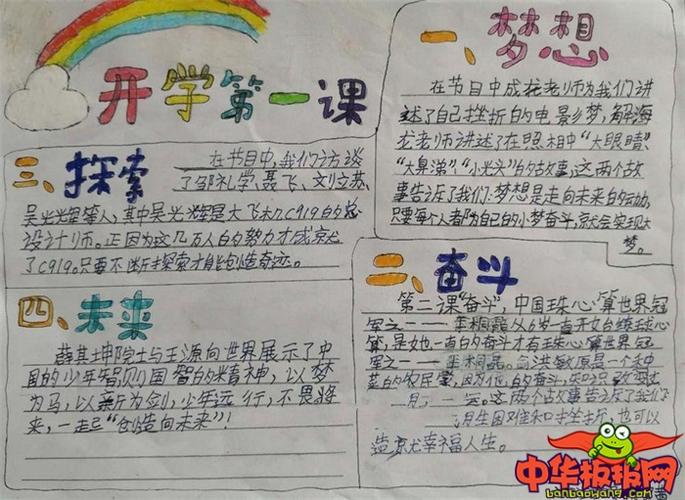 开学第一课
一、梦想
在节目中成龙老师为我们讲
述了自己挫折的电影梦,解海
龙老师讲述了在照相中“大眼睛”
“大鼻涕”“小光头”的故事,这两个故
事告诉了我们:梦想是走向未来的动力,
只要每个人都为自己的小梦奋斗,就会实现大
梦。
二、奋斗
第二课“奋斗”,中国珠心算世界冠
军之一——桐磊从6岁一直开始练珠心
算,是她一直的奋斗才有珠心算世界冠
军之一——桐磊。洪敏原是一个种
菜的农民,因为他的奋斗,
月,一。这两个故事告诉了我们
月生困难和挫折,也可以
造就幸福人生。
三、探索
在节目中,我们访谈
了邹礼学、聂飞、刘立苏、
吴光辉等人,其中吴光辉是大飞机C919的总
设计师。正因为这几万人的努力才成就
了C919。只要不断探索才能创造奇迹。
四、未来
薛其坤院士与王源向世界展示了中
国的少年智,则国智的精神,以梦
为马,以新为剑,少年远行,不畏将
来,一起“创造向未来”!
中华板报网
banbaowang.com